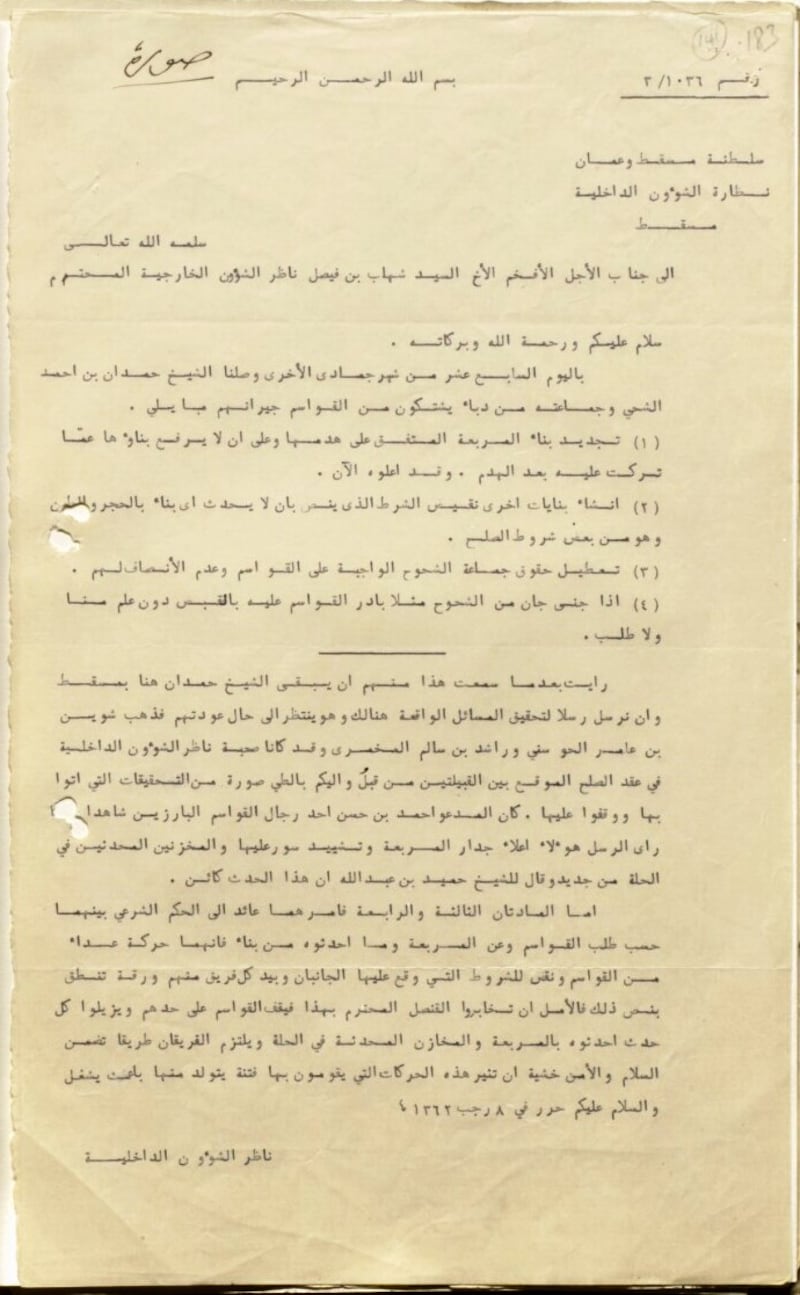 صورة
183
بسم الله الرحمن الرحيم
رقم ١٠٣٦/ ٣
سلطنة مسقط وعمان
نظارة الشوءون الداخلية
مسقط
سلمه الله تعالى
الى جناب الأجل الأفخم الأخ السيد شهاب بن فيصل ناظر الشؤون الخارجية المحترم
سلام عليكم ورحمة الله وبركاته .
باليوم السابع عشر من شهر جمادى الأخرى وصلنا الشيخ حمدان بن احمد
الشحي وجماعته من دباء يشتكون من القواسم جيرانهم مايلي .
(١) تجديد بناء المربعة المتفق على هدمها وعلى ان لا يرفع بناوءها عمّا
تركت عليه بعد الهدم . وقد اعلوه الآن .
(٢) انشاء بنايات اخرى نقيض الشرط الذى ينص بان لا يحدث اى بناء بالحجر والطين
وهو من بعض شروط الصلح .
(٣) تعطيل حقوق جماعة الشحوح الواجبة على القواسم وعدم الأنصاف لهم .
(٤) اذا جنى جان من الشحوح مثلا بادر القواسم عليه بالقبض دون علم منا
ولا طلب .
رايت بعدما سمعت هذا منهم ان يبقى الشيخ حمدان هنا بمسقط
وان نرسل رسلا لتحقيق المسائل الواقعة هنالك وهو ينتظر الى حال عودتهم فذهب شوين
بن عامر الحوسني وراشد بن سالم المخمرى وقد كانا صحبة ناظر الشوءون الداخلية
في عقد الصلح الموقع بين القبيلتين من قبل واليكم بالطي صورة من التحقيقات التي اتوا
بها ووقفوا عليها . كان المدعو احمد بن حسن احد رجال القواسم البارزين شاهدا
راى الرسل هوءلاء اعلاء جدار المربعة وتشييد سور عليها والمخزنين المحدثين في
الحلة من جديد وقال للشيخ حميد بن عبدالله ان هذا الحدث كائن .
اما المادتان الثالثة والرابعة فامرهما عائد الى الحكم الشرعي بينهما
حسب طلب القواسم وعن المربعة وما احدثوه من بناء فانهما حركة عداء
من القواسم ونقض للشروط التي وقع عليها الجانبان وبيد كل فريق منهم ورقة تنطق
بنص ذلك فالأمل ان تخابروا القنصل المحترم بهذا فيقف القواسم على حدهم ويزيلوا كل
حدث احدثوه بالمربعة والمخازن المحدثة في الحلة ويلتزم الفريقان طريقا تضمن
السلام والأمن خشية ان تثير هذه الحركات التي يقومون بها فتنة يتولد منها باعث يشغل
والسلام عليكم حرر في ٨ رجب ١٣٦٢
ناظر الشوءون الداخلية